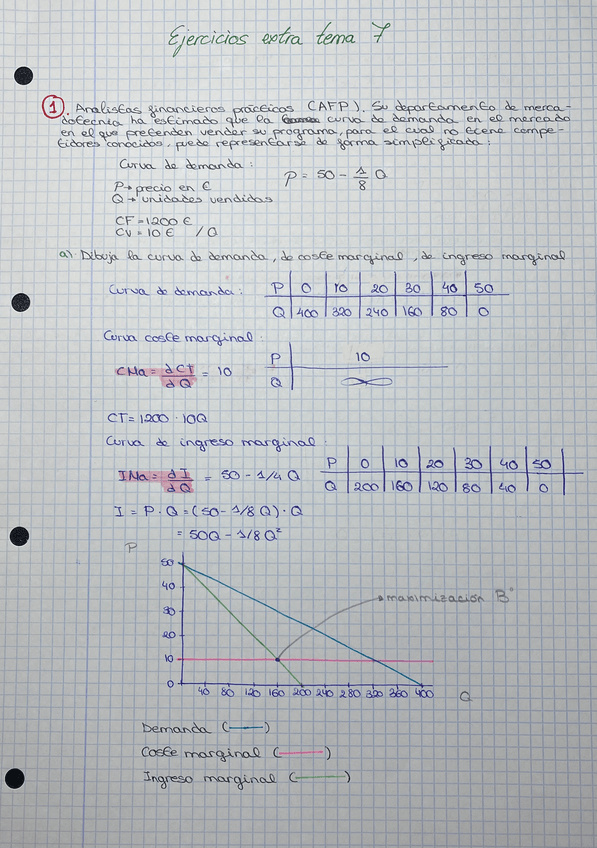 Ejercicios extra tema 7
1. Analistas financieros prácticos (AFP). Su departamento de merca-
dotecnia ha estimado que la curva de demanda en el mercado
en el que pretenden vender su programa, para el cual no tiene compe-
tidores conocidos, puede representarse de forma simplificada:
Curva de demanda: P = 50 - 1/8 Q
P→ precio en €
Q→ unidades vendidas
CF = 1200 €
CV = 10 € / Q
a) Dibuja la curva de demanda, de coste marginal, de ingreso marginal
Curva de demanda: P 0 10 20 30 40 50
Q 400 320 240 160 80 0
Curva coste marginal: P 10
CMa = dCT/dQ = 10 Q ∞
CT = 1200 · 10Q
Curva de ingreso marginal: P 0 10 20 30 40 50
IMa = dI/dQ = 50 - 1/4 Q Q 200 160 120 80 40 0
I = P · Q = (50 - 1/8 Q) · Q
= 50Q - 1/8 Q²
P
50
40
30
20
10
0
maximización Bº
40 80 120 160 200 240 280 320 360 400 Q
Demanda ( )
Coste marginal ( )
Ingreso marginal ( )